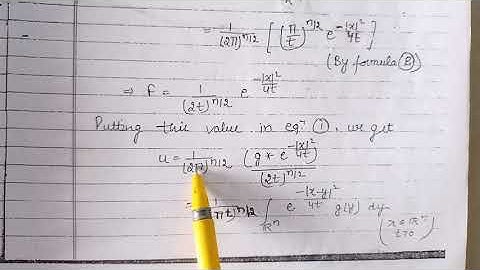 = 1/(2π)^n/2 [ (π/t)^n/2 e^-|x|²/4t ]
(By formula Ⓑ)
⇒ F = 1/(2t)^n/2 e^-|x|²/4t
Putting this value in eqⁿ ①, we get
u = 1/(2π)^n/2 (g * e^-|x|²/4t)/(2t)^n/2
= 1/(4πt)^n/2 ∫_ℝⁿ e^-|x-y|²/4t g(y) dy (x ∈ ℝⁿ, t>0)